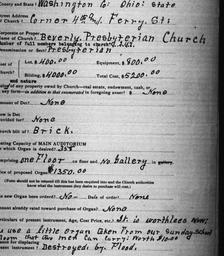 County and State Washington Co. Ohio. State
Street Address of Church Corner 4th & Ferry. Sts
Corporate or Proper Name of Church Beverly. Presbyterian Church
Number of full members belonging to church
Denomination or Sect Presbyterian.
Lot $ 400.00 Equipment, $ 800.00
Church Building, $ 4000.00 Total Cost $ 5200.00
and nature of any property owned by Church—real estate, endowment, cash, or
any form—in addition to that enumerated in foregoing areas? $ None
amount of Debt? None
None
Church built of: Brick.
Seating Capacity of MAIN AUDITORIUM
which Organ is desired? 355
comprising one Floor on floor and No Gallery in gallery.
Price of proposed Organ $1350.00
new Organ been ordered? No— Date of order? None
amount already raised toward purchase of Organ? None
Particulars of present instrument, Age, Cost Price, etc.? It is worthless Now;
use a little Organ taken from our Sunday-School
Room that two men can carry: Worth $10.00
present instrument? Destroyed by. Flood.